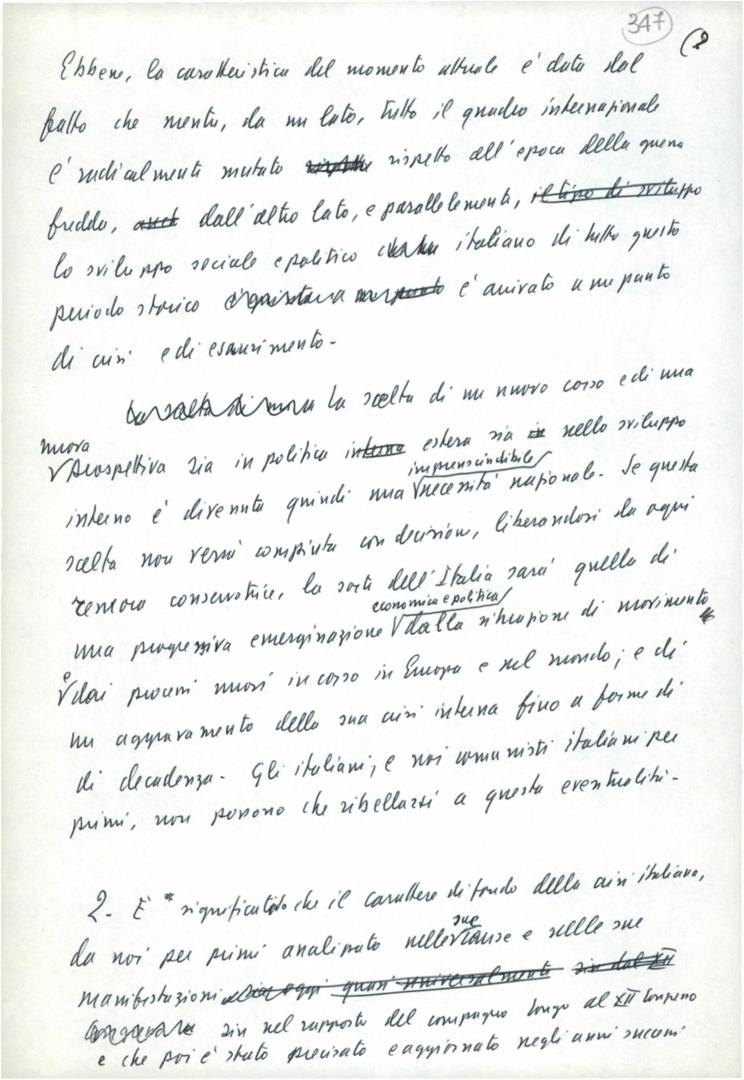 347
(2
Ebbene, la caratteristica del momento attuale è data dal
fatto che mentre, da un lato, tutto il quadro internazionale
è radicalmente mutato rispetto all'epoca della guerra
fredda, anche dall'altro lato, e parallelamente, il tipo di sviluppo
lo sviluppo sociale e politico italiano di tutto questo
periodo storico è arrivato a un punto
di crisi e di esaurimento.
La scelta di nuova La scelta di un nuovo corso e di una
nuova
prospettiva sia in politica interna estera sia in nello sviluppo
imprenscindibile
interno è divenuta quindi una necessità nazionale. Se questa
scelta non verrà compiuta con decisione, liberandosi da ogni
remora conservatrice, la sorte dell'Italia sarà quella di
economica e politica
una progressiva emarginazione dalla situazione di movimento
e
dai processi nuovi in corso in Europa e nel mondo; e di
un aggravamento della sua crisi interna fino a forme di
di decadenza. Gli italiani, e noi comunisti italiani per
primi, non possono che ribellarsi a questa eventualità.
2. È * significativo che il carattere di fondo della crisi italiana,
sue
da noi per primi analizzato nelle cause e nelle sue
manifestazioni oggi quasi universalmente sin dal XII
sin nel rapporto del compagno Longo al XII Congresso
e che poi è stato precisato e aggiornato negli anni successivi